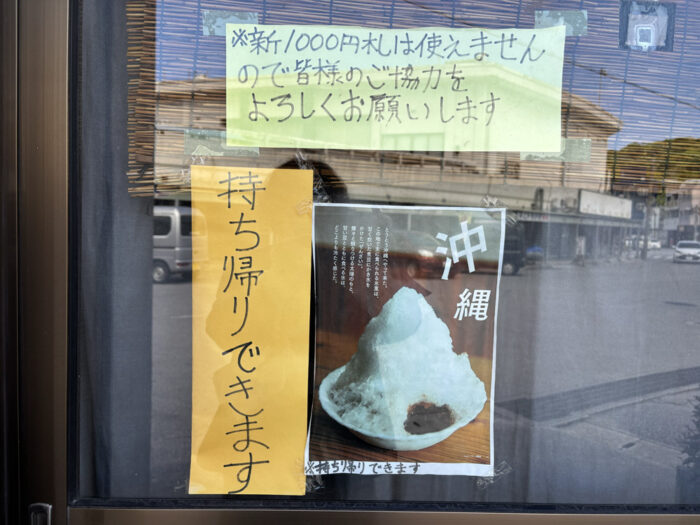 ※新1000円札は使えません
ので皆様のご協力を
よろしくお願いします
持ち帰りできます
沖縄
※持ち帰りできます